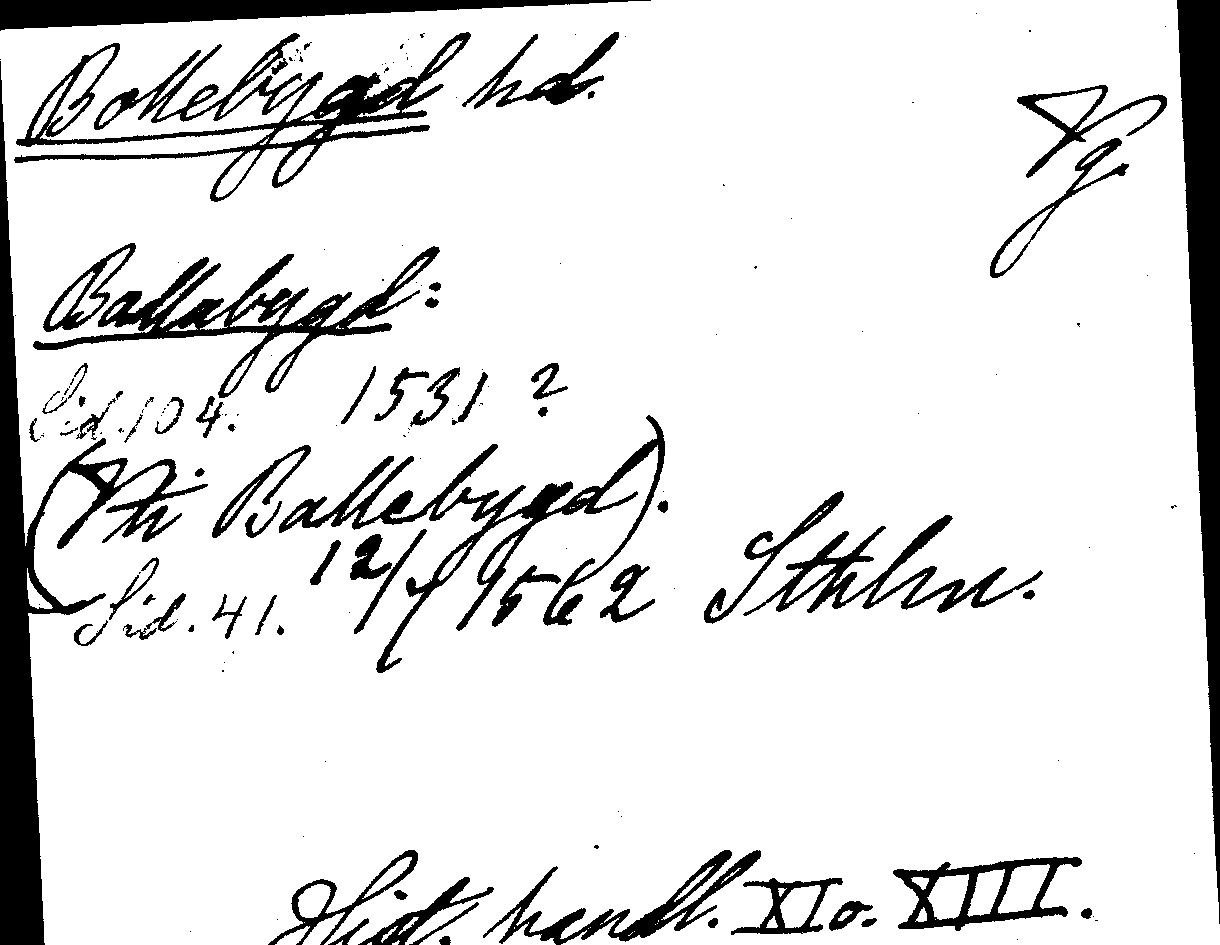 Bollebygd hd.
Vg.
Ballabygd:
Sid. 104. 1531 ?
(Vti Ballebygd).
Sid. 41. 12/7 1562 Sthlm.
Hist. handl. XI o. XIII.